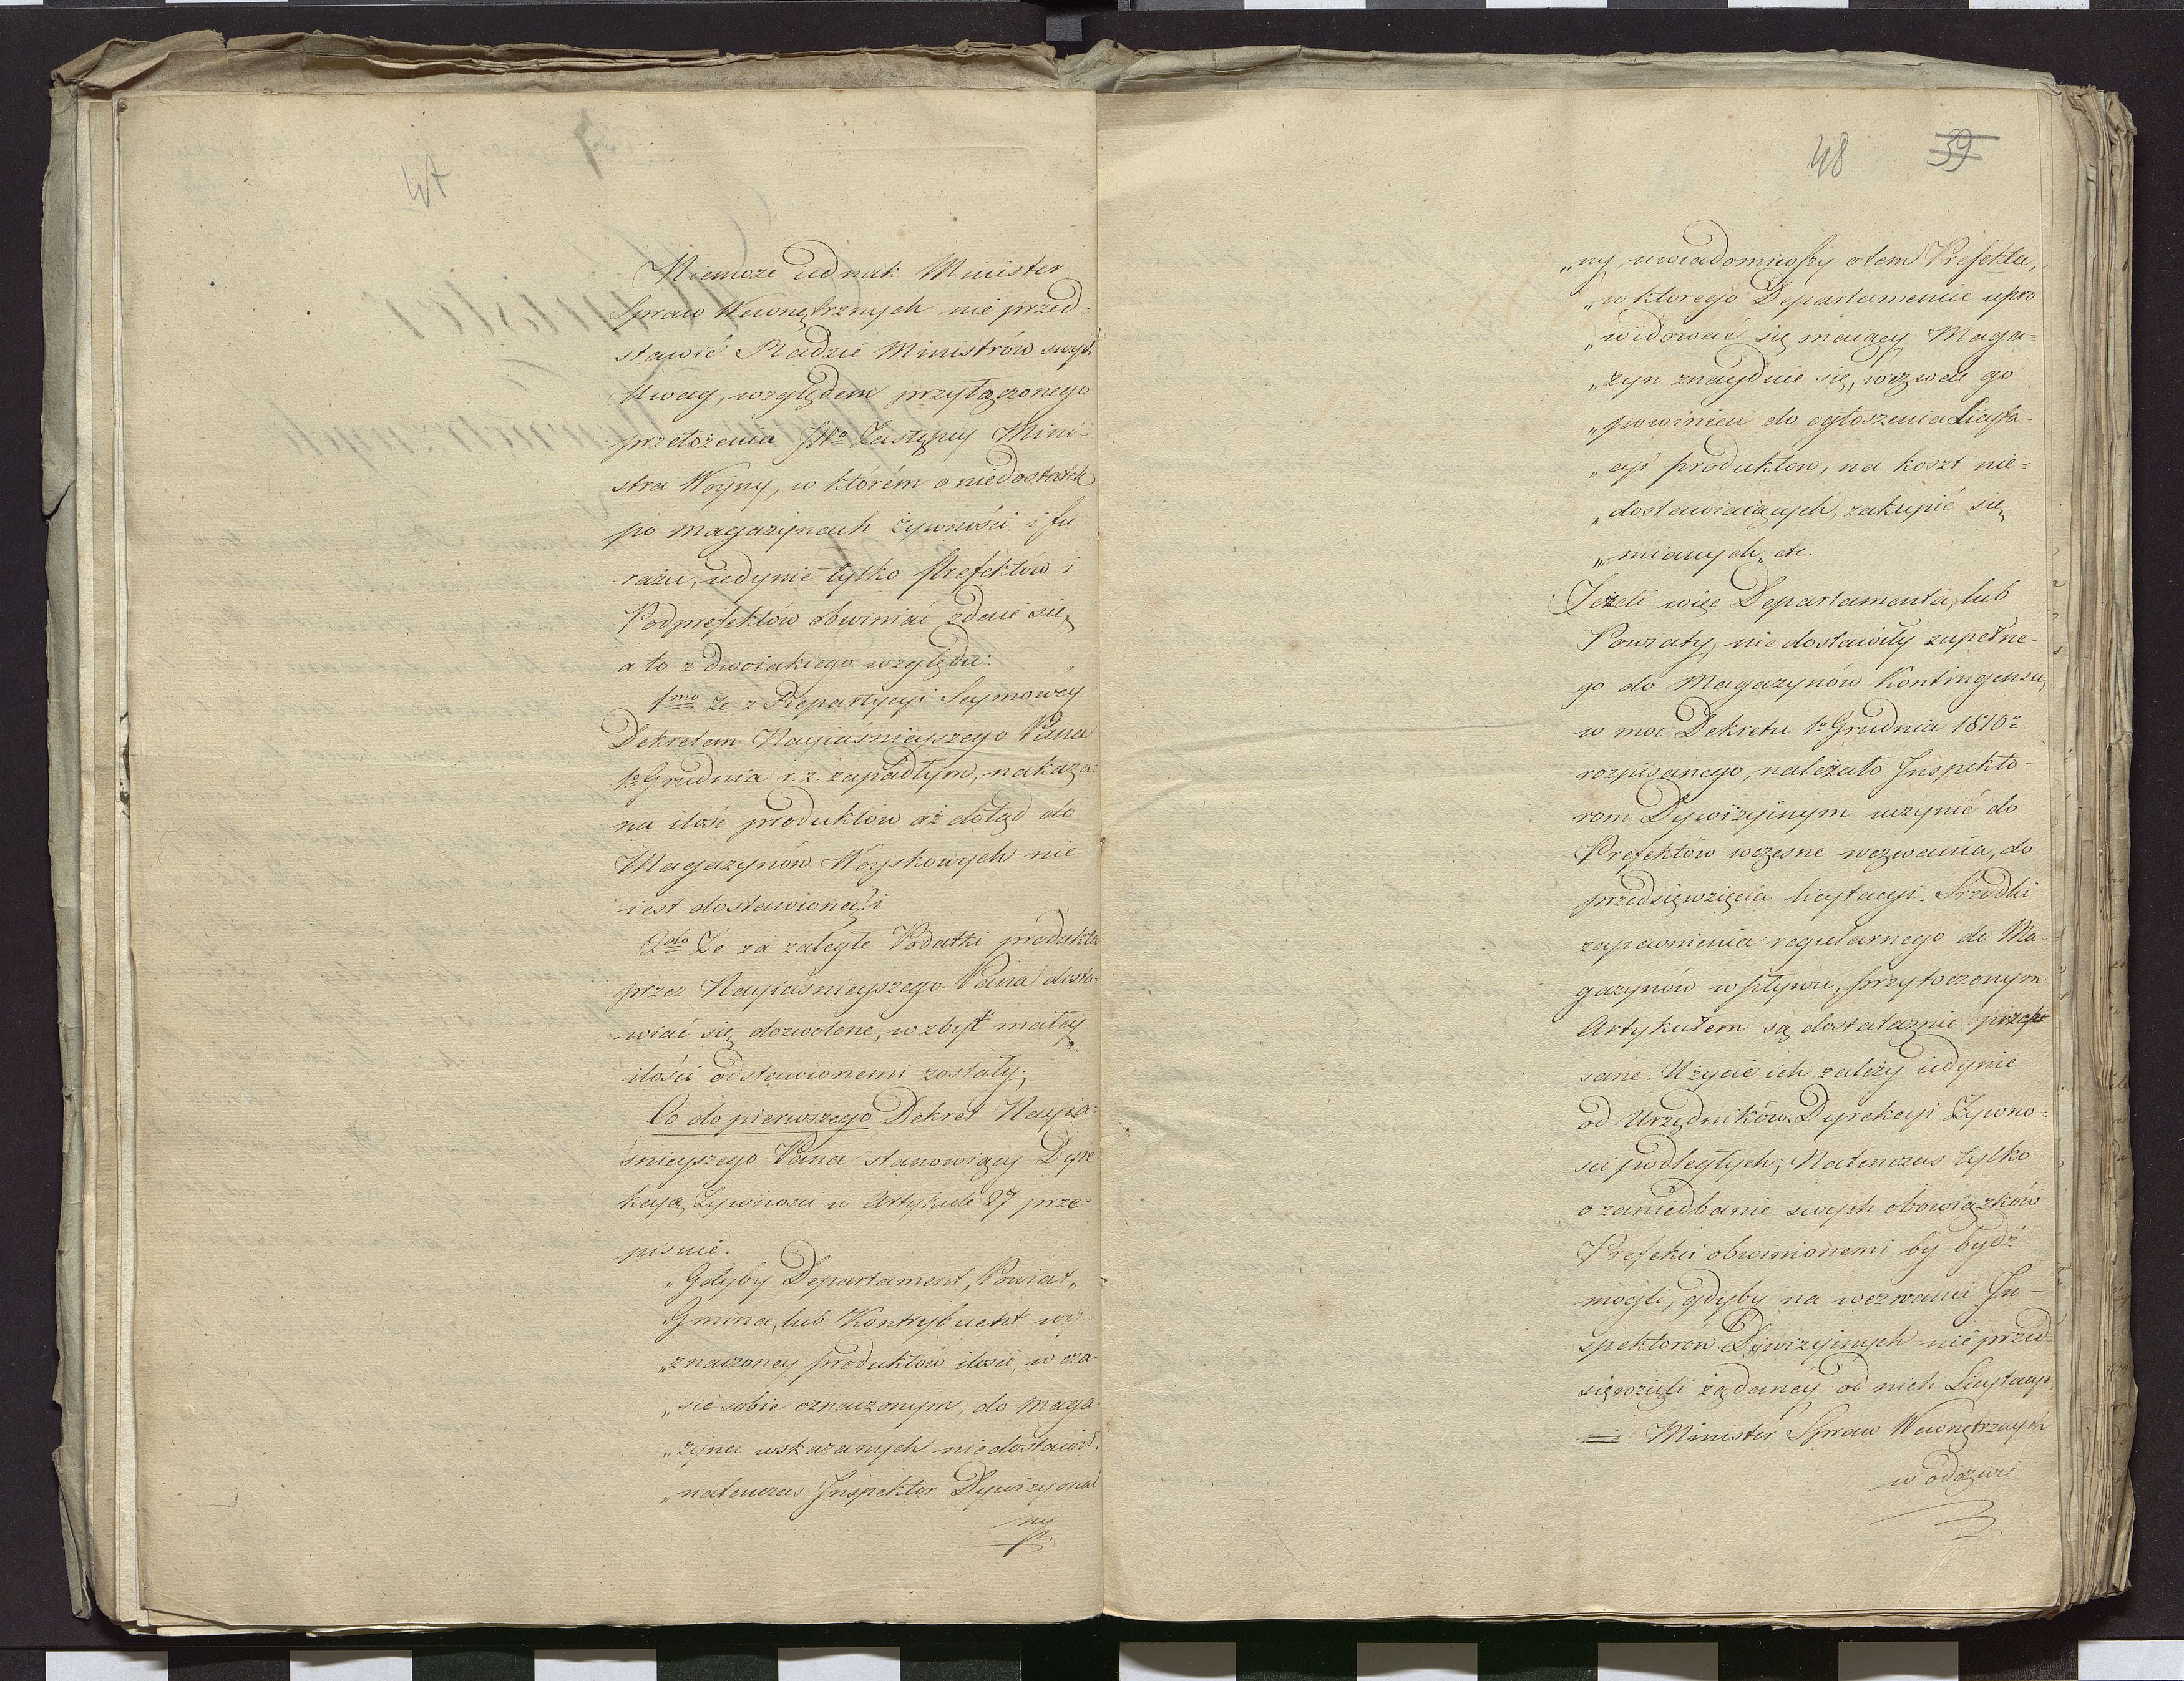 47
Niemoże iednak Minister
Spraw Wewnętrznych nie przed-
stawić Radzie Ministrów swych
Uwag, względem przyłączonego
przełożenia JWo Zastępcy Mini-
stra Woyny, w którém o niedostatek
po magazynach żywności i fu-
rażu, iedynie tylko Prefektów i
Podprefektów obwiniać zdaie się,
a to z dwoiakiego względu:
1mo Że z Repartycyi Seymowey
Dekretem Nayiaśnieyszego Pana
1o Grudnia r. z. zapadłym, nakaza-
na ilość produktów aż dotąd do
Magazynów Woyskowych nie
iest dostawioną: i
2do Że za zaległe Podatki produkta
przez Nayiaśnieyszego Pana dosta-
wiać się dozwolone, w zbyt małey
ilości odstawionemi zostały;
Co do pierwszego Dekret Nayia-
śnieyszego Pana stanowiący Dyre-
kcyą Żywności w Artykule 27 prze-
pisuie.
„Gdyby Departament, Powiat„
Gmina, lub Kontrybuent wy-
„znaczoney produktów ilości, w cza-
„sie sobie oznaczonym, do Maga-
„zynu wskazanych niedostawił,
„natenczas Inspektor Dywizyonal
ny
48 39
„ny, uwiadomiwszy otem Prefekta,
„w ktorego Departamencie upro
„widować się maiący Maga-
„zyn znayduie się, wezwać go
„powinien do ogłoszenia Licyta-
„cyi produktow, na koszt nie-
„dostawiaiących, zakupić się
„maianych„ etc.
Jeżeli więc Departamenta, lub
Powiaty, nie dostawiły zupełne-
go do Magazynów Kontingensu,
w moc Dekretu 1o Grudnia 1810 r
rozpisanego, należało Inspekto-
rom Dywizyinym uczynić do
Prefektów wczesne wezwania, do
przedsięwzięcia licytacyi. Srzodki
zapewnienia regularnego do Ma-
gazynów wpływu, przytoczonym
Artykułem są dostatecznie przepi
sane. Użycie ich zależy iedynie
od Urzędników Dyrekcyi Żywno-
sci podległych; Natenczas tylko
o zaniedbanie swych obowiązków
Prefekci obwinionemi by bydź
mogli, gdyby na wezwania In-
spektorow Dywizyinych nie przed-
sięwzieli żądaney od nich Licytacyi
nie. Minister Spraw Wewnętrznych
w odezwie